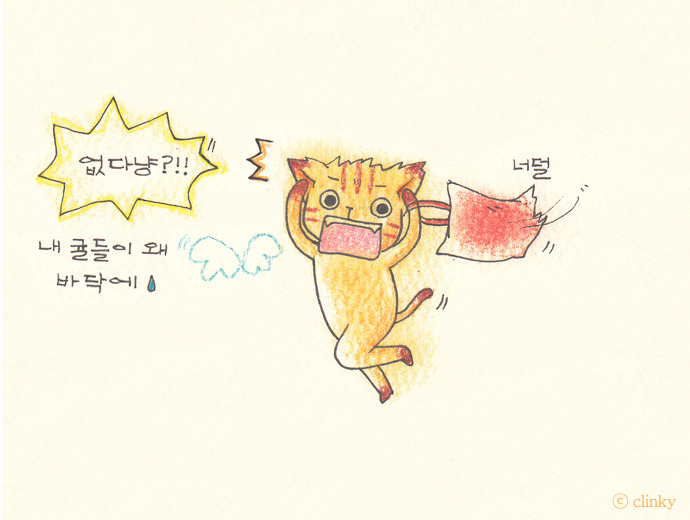 없다냥?!!
너덜
내 귤들이 왜
바닥에
ⓒ clinky